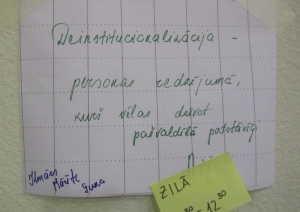 Deinstitucionalizācija -
personas redzējumā,
kurš vēlas dzīvot
pašvaldībā patstāvīgi
Ilmārs
Mārīte
Guna
ZILĀ
12³⁰